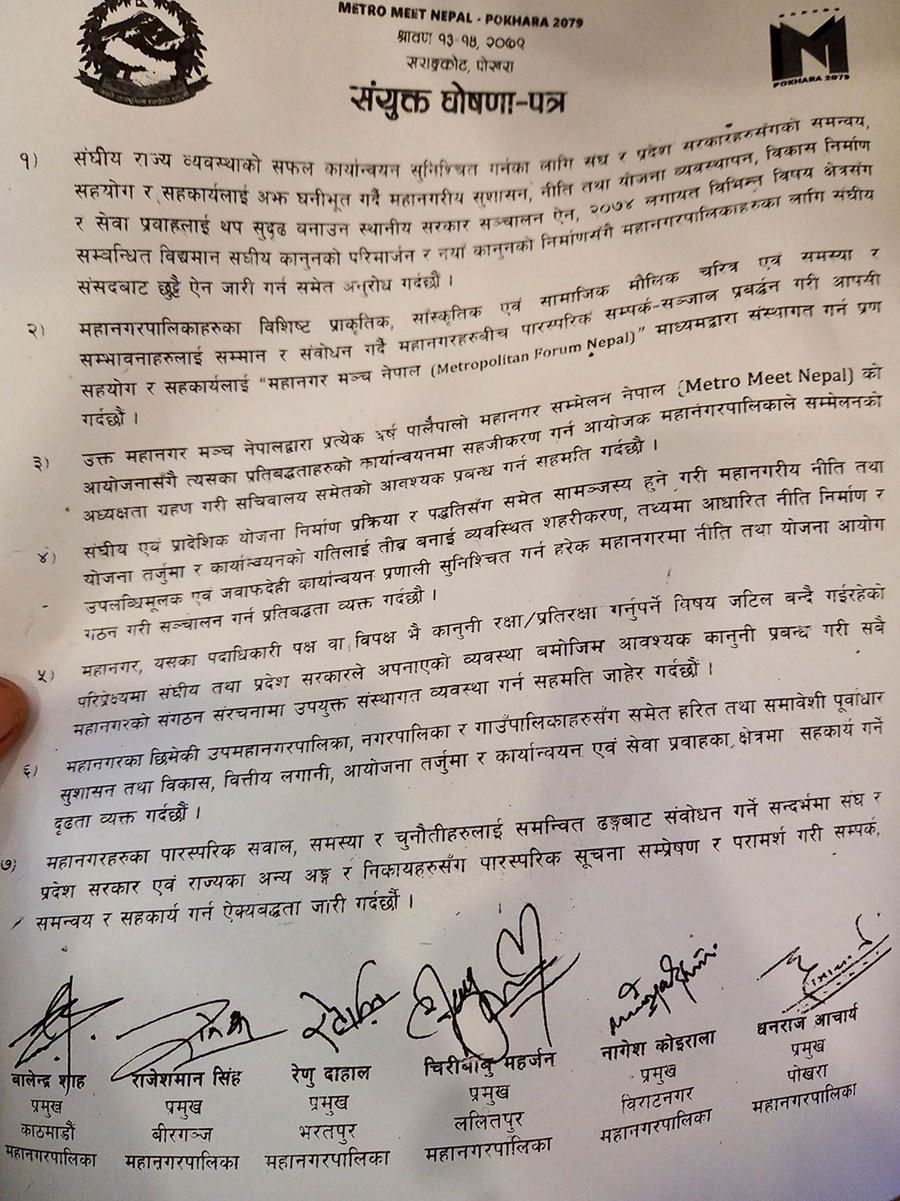 METRO MEET NEPAL - POKHARA 2079
श्रावण १३-१४, २०७९
सराङकोट, पोखरा
POKHARA 2079
संयुक्त घोषणा-पत्र
१) संघीय राज्य व्यवस्थाको सफल कार्यान्वयन सुनिश्चित गर्नका लागि संघ र प्रदेश सरकारहरुसँगको समन्वय,
सहयोग र सहकार्यलाई अझ घनीभूत गर्दै महानगरीय सुशासन, नीति तथा योजना व्यवस्थापन, विकास निर्माण
र सेवा प्रवाहलाई थप सुदृढ बनाउन स्थानीय सरकार सञ्चालन ऐन, २०७४ लगायत विभिन्न विषय क्षेत्रसँग
सम्बन्धित विद्यमान संघीय कानुनको परिमार्जन र नयाँ कानुनको निर्माणसँगै महानगरपालिकाहरुका लागि संघीय
संसदबाट छुट्टै ऐन जारी गर्न समेत अनुरोध गर्दछौं ।
२) महानगरपालिकाहरुका विशिष्ट प्राकृतिक, साँस्कृतिक एवं सामाजिक मौलिक चरित्र एवं समस्या र
सम्भावनाहरुलाई सम्मान र संवोधन गर्दै महानगरहरुबीच पारस्परिक सम्पर्क-सञ्जाल प्रबर्द्धन गरी आपसी
सहयोग र सहकार्यलाई "महानगर मञ्च नेपाल (Metropolitan Forum Nepal)" माध्यमद्वारा संस्थागत गर्न प्रण
गर्दछौं ।
३) उक्त महानगर मञ्च नेपालद्वारा प्रत्येक वर्ष पालैपालो महानगर सम्मेलन नेपाल (Metro Meet Nepal) को
आयोजनासँगै त्यसका प्रतिबद्धताहरुको कार्यान्वयनमा सहजीकरण गर्न आयोजक महानगरपालिकाले सम्मेलनको
अध्यक्षता ग्रहण गरी सचिवालय समेतको आवश्यक प्रबन्ध गर्न सहमति गर्दछौं ।
४) संघीय एवं प्रादेशिक योजना निर्माण प्रक्रिया र पद्धतिसँग समेत सामञ्जस्य हुने गरी महानगरीय नीति तथा
योजना तर्जुमा र कार्यान्वयनको गतिलाई तीव्र बनाई व्यवस्थित शहरीकरण, तथ्यमा आधारित नीति निर्माण र
उपलब्धिमूलक एवं जवाफदेही कार्यान्वयन प्रणाली सुनिश्चित गर्न हरेक महानगरमा नीति तथा योजना आयोग
गठन गरी सञ्चालन गर्न प्रतिबद्धता व्यक्त गर्दछौं ।
५) महानगर, यसका पदाधिकारी पक्ष वा विपक्ष भै कानुनी रक्षा/प्रतिरक्षा गर्नुपर्ने विषय जटिल बन्दै गईरहेको
परिप्रेक्ष्यमा संघीय तथा प्रदेश सरकारले अपनाएको व्यवस्था बमोजिम आवश्यक कानुनी प्रबन्ध गरी सबै
महानगरको संगठन संरचनामा उपयुक्त संस्थागत व्यवस्था गर्न सहमति जाहेर गर्दछौं ।
६) महानगरका छिमेकी उपमहानगरपालिका, नगरपालिका र गाउँपालिकाहरुसँग समेत हरित तथा समावेशी पूर्वाधार
सुशासन तथा विकास, वित्तीय लगानी, आयोजना तर्जुमा र कार्यान्वयन एवं सेवा प्रवाहका क्षेत्रमा सहकार्य गर्ने
दृढता व्यक्त गर्दछौं ।
७) महानगरहरुका पारस्परिक सवाल, समस्या र चुनौतीहरुलाई समन्वित ढङ्गबाट संवोधन गर्ने सन्दर्भमा संघ र
प्रदेश सरकार एवं राज्यका अन्य अङ्ग र निकायहरुसँग पारस्परिक सूचना सम्प्रेषण र परामर्श गरी सम्पर्क,
समन्वय र सहकार्य गर्न ऐक्यबद्धता जारी गर्दछौं ।
बालेन्द्र शाह राजेशमान सिंह रेणु दाहाल चिरीबाबु महर्जन नागेश कोइराला धनराज आचार्य
प्रमुख प्रमुख प्रमुख प्रमुख प्रमुख प्रमुख
काठमाडौं बीरगञ्ज भरतपुर ललितपुर विराटनगर पोखरा
महानगरपालिका महानगरपालिका महानगरपालिका महानगरपालिका महानगरपालिका महानगरपालिका